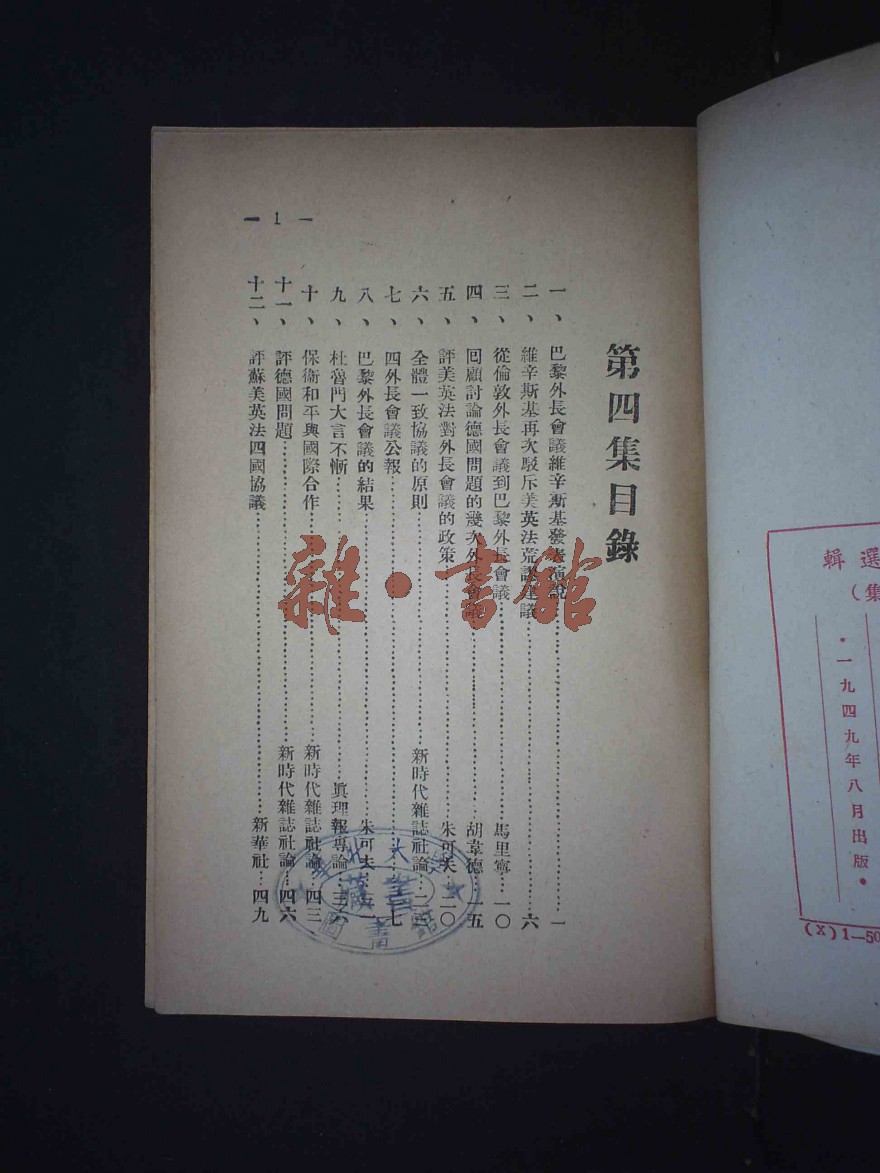 第四集目錄
一、巴黎外長會議維辛斯基發表演說……一
二、維辛斯基再次駁斥美英法荒謬建議……六
三、從倫敦外長會議到巴黎外長會議……馬里寧……一〇
四、回顧討論德國問題的幾次外長會議……胡韋德……一五
五、評美英法對外長會議的政策……朱可夫……二〇
六、全體一致協議的原則……新時代雜誌社論……二
七、四外長會議公報……七
八、巴黎外長會議的結果……朱可夫
九、杜魯門大言不慚……眞理報專論……三六
十、保衞和平與國際合作……新時代雜誌社論……四三
十一、評德國問題……新時代雜誌社論……四六
十二、評蘇美英法四國協議……新華社……四九
— 1 —
雜·書館
大
北
藏書
圖書館
選輯
集)
·一九四九年八月出版·
(X)1—50